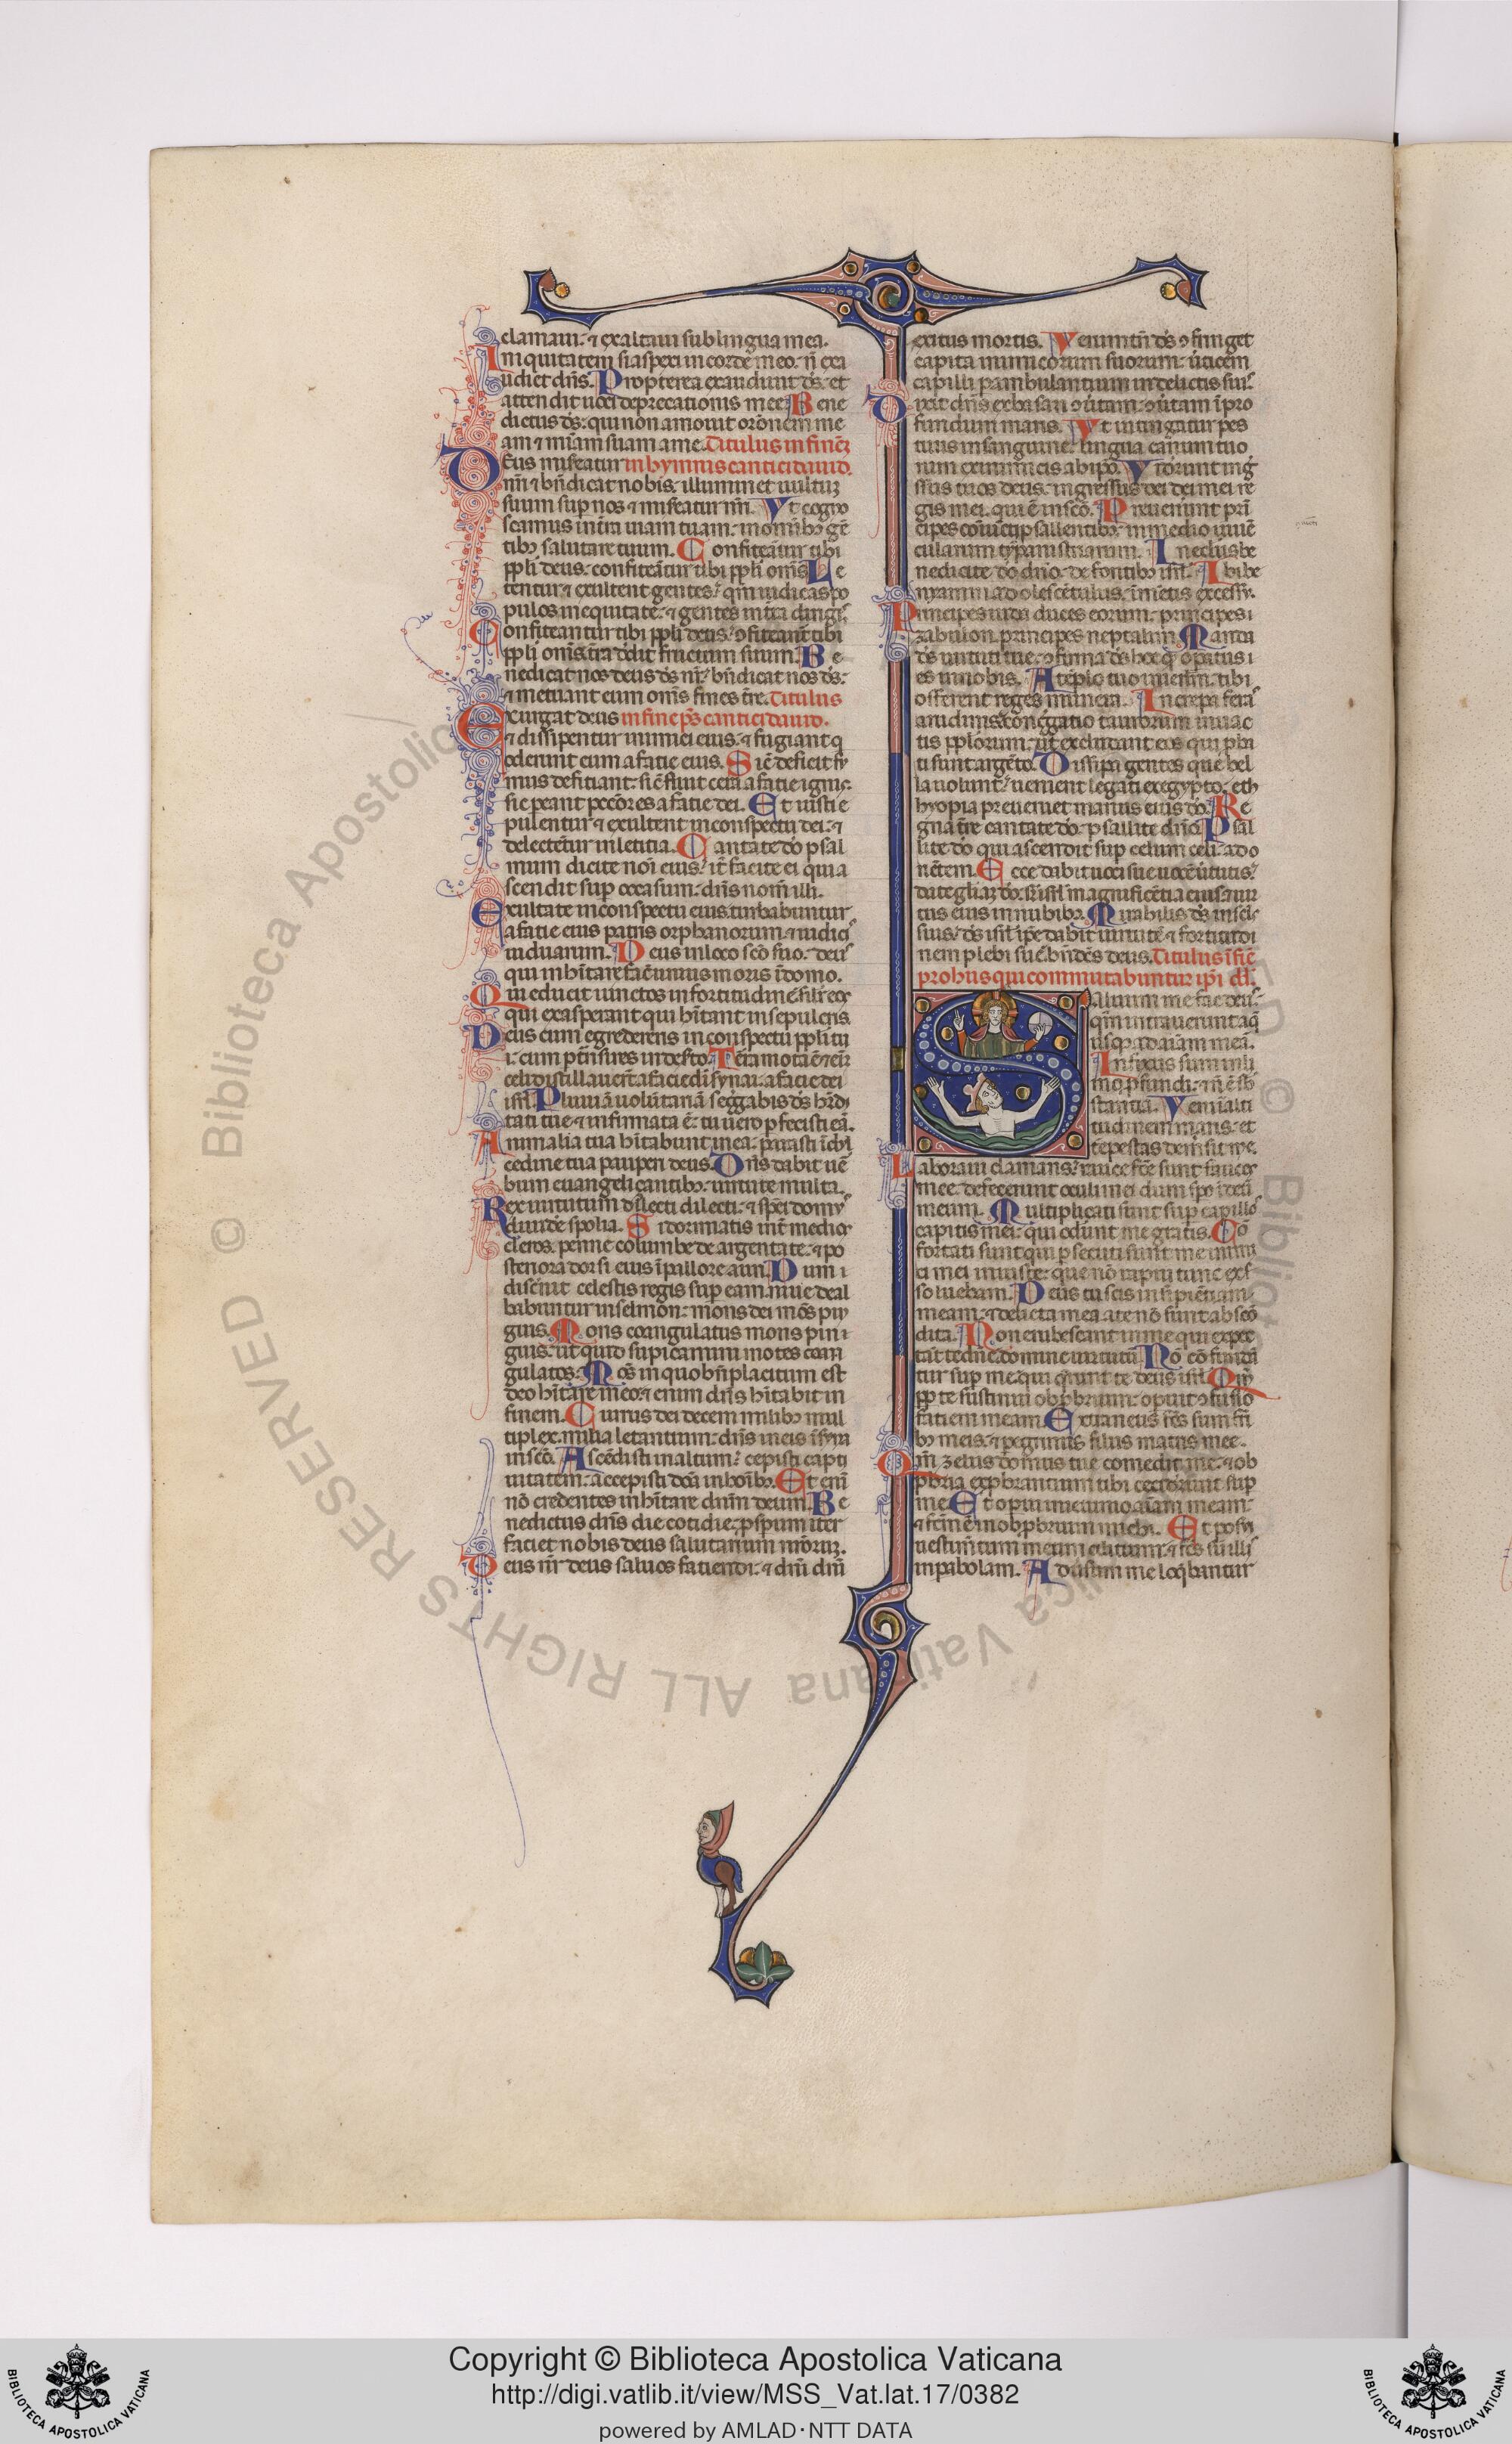 clamaui: ⁊ exaltaui sub lingua mea.
Iniquitatem si aspexi in corde meo: n̄ exa
udiet dn̄s. Propterea exaudiuit ds̄: et
attendit uoci deprecationis mee. Bene
dictus ds̄: qui non amouit or̄onem me
am ⁊ mīam suam a me. Titulus in finē
Deus misereatur in hymnis cantici dauid.
nr̄i ⁊ bn̄dicat nobis: illuminet uultuꝫ
suum sup nos ⁊ misereatur nr̄i. Vt cogno
scamus in tr̄a uiam tuam: in om̄ibꝫ gē
tibꝫ salutare tuum. Confiteātur tibi
ppl̄i deus: confiteātur tibi ppl̄i om̄s. Le
tentur ⁊ exultent gentes: qm̄ iudicas po
pulos in equitate: ⁊ gentes in tr̄a dirigis.
Confiteantur tibi ppl̄i deus: ꝯfiteant̄ tibi
ppl̄i om̄s: tr̄a dedit fructum suum. Be
nedicat nos deus ds̄ nr̄: bn̄dicat nos ds̄:
⁊ metuant eum om̄s fines tr̄e. Titulus
Exurgat deus in fine ps̄ cantici dauid.
⁊ dissipentur inimici eius: ⁊ fugiant q
oderunt eum a facie eius. Sic̄ deficit fu
mus deficiant: sic̄ fluit cera a facie ignis:
sic peant peccōres a facie dei. Et iusti e
pulentur ⁊ exultent in conspectu dei: ⁊
delectētur in letitia. Cantate dō psal
mum dicite noī eius: it̄ facite ei qui a
scendit sup occasum: dn̄s nom̄ illi.
Exultate in conspectu eius turbabuntur
a facie eius patris orphanorum ⁊ iudicis
uiduarum. Deus in loco scō suo: deus
qui inhītare facit unius moris ī domo.
Qui educit uinctos in fortitudine: silr̄ eos
qui exasperant qui hītant in sepulcris.
Deus cum egredereris in conspectu ppl̄i tu
i: cum ptn̄sires in deserto. Terra mota ē: et eni
celi distillauerūt a facie di synai: a facie dei
isrl̄. Pluuiā uolūtariā seggabis ds̄ hr̄di
tati tue: ⁊ infirmata ē: tu uero pfecisti eā.
Animalia tua hītabunt in ea: parasti ī dul
cedine tua pauperi deus. Dn̄s dabit uē
bum euangelicantibꝫ: uirtute multa.
Rex uirtutum dilecti dilecti: ⁊ sp̄ei domꝰ
diuidē spolia. Si dormiatis int̄ medios
cleros penne columbe de argentate: ⁊ po
steriora dorsi eius ī pallore auri. Dum
discernit celestis regis sup eam: niue deal
babuntur in selmon: mons dei mōs pin
guis. Mons coagulatus mons pin
guis: ut quid suspicamini mōtes coa
gulatos. Mōs in quo bn̄placitum est
deo hītare in eo: ⁊ enim dn̄s hītabit in
finem. Currus dei decem milibꝫ mul
tiplex: milia letantium: dn̄s in eis ī syna
in scō. Ascēdisti in altum: cepisti capti
uitatem: accepisti dōa in hoībꝫ. Et eni
nō credentes inhītare dn̄m deum. Be
nedictus dn̄s die cotidie: pspum iter
faciet nobis deus salutarium nr̄oruꝫ.
Deus nr̄ deus saluos faciendi: ⁊ dn̄i dn̄i
exitus mortis. Veruntn̄ ds̄ ꝯfringet
capita inimicorum suorum: ūticem
capilli pambulantium in delictis suis.
Dixit dn̄s ex basan ꝯūtam: ꝯūtam ī pro
fundum maris. Vt intingatur pes
tuus in sanguine: lingua canum tuo
rum ex inimicis ab ipo. Viderunt ing
ssus tuos deus: ingressus dei dei mei re
gis mei: qui ē in scō. Preuenerunt prī
cipes cōiuncti psallentibꝫ: in medio iuuē
cularum tympanistriarum. In ecclīis be
nedicite dō dn̄o: de fontibꝫ isrl̄. Ibi be
nyamin adolescētulus: ī mētis excessu.
Principes iuda duces eorum: principes
zabulon principes neptalim. Manda
ds̄ uirtuti tue: ꝯfirma ds̄ hoc q̄ opatus
es in nobis. A tēplo tuo in ierl̄m: tibi
offerent reges munera. Increpa feras
arundinis: cōgregatio taurorum in uac
cis pplorum: ut excludant eos qui pba
ti sunt argēto. Dissipa gentes que bel
la uolunt: uenient legati ex egypto: eth
hyopia preueniet manus eius dō. Re
gna tr̄e cantate dō: psallite dn̄o. Psal
lite dō qui ascendit sup celum celi: ad o
riētem. Ecce dabit uoci sue uocē ūtutis:
date gl̄iaꝫ dō: sup isrl̄ magnificētia eius: ⁊ uir
tus eius in nubibꝫ. Mirabilis ds̄ in scīs
suis: ds̄ isrl̄ ipe dabit uirtutē ⁊ fortitudi
nem plebi sue: bn̄dcs̄ deus. Titulus ī finē
pro his qui commutabuntur ipī dd̄.
Saluum me fac deus:
qm̄ intrauerunt aq̄
usqꝫ ad aīam meā.
Infixus sum in li
mo pfundi: ⁊ n̄ ē sb
stantia. Veni ī alti
tudinem maris: et
tēpestas demsit me.
Laboraui clamans: rauce fce sunt fauces
mee: defecerunt oculi mei dum spo ī deū
meum. Multiplicati sunt sup capillos
capitis mei: qui odunt me gratis. Cō
fortati sunt qui psecuti sunt me inimi
ci mei iniuste: que nō rapui tunc exs
soluebam. Deus tu scis insipiētiam
meam: ⁊ delicta mea a te nō sunt abscō
dita. Non erubescant in me qui expec
tāt te dn̄e: domine uirtutū. Nō cōfundā
tur sup me: qui q̄runt te deus isrl̄. Qm̄
pp te sustinui obpbrium: opuit ꝯfusio
faciem meam. Extraneus fcs̄ sum fr̄i
bꝫ meis: ⁊ pegrinus filiis matris mee.
Qm̄ zelus domus tue comedit me: ⁊ ob
pbria exprbrantium tibi ceciderunt sup
me. Et opui in ieiunio aīam meam:
⁊ fcm̄ ē in obpbrium michi. Et posui
uestim̄tum meum cilicium: ⁊ fcs̄ sū illis
in pabolam. Aduersum me loq̄bantur
Copyright © Biblioteca Apostolica Vaticana
http://digi.vatlib.it/view/MSS_Vat.lat.17/0382
powered by AMLAD·NTT DATA
BIBLIOTECA APOSTOLICA VATICANA
BIBLIOTECA APOSTOLICA VATICANA
© Biblioteca Apostolica Vaticana ALL RIGHTS RESERVED